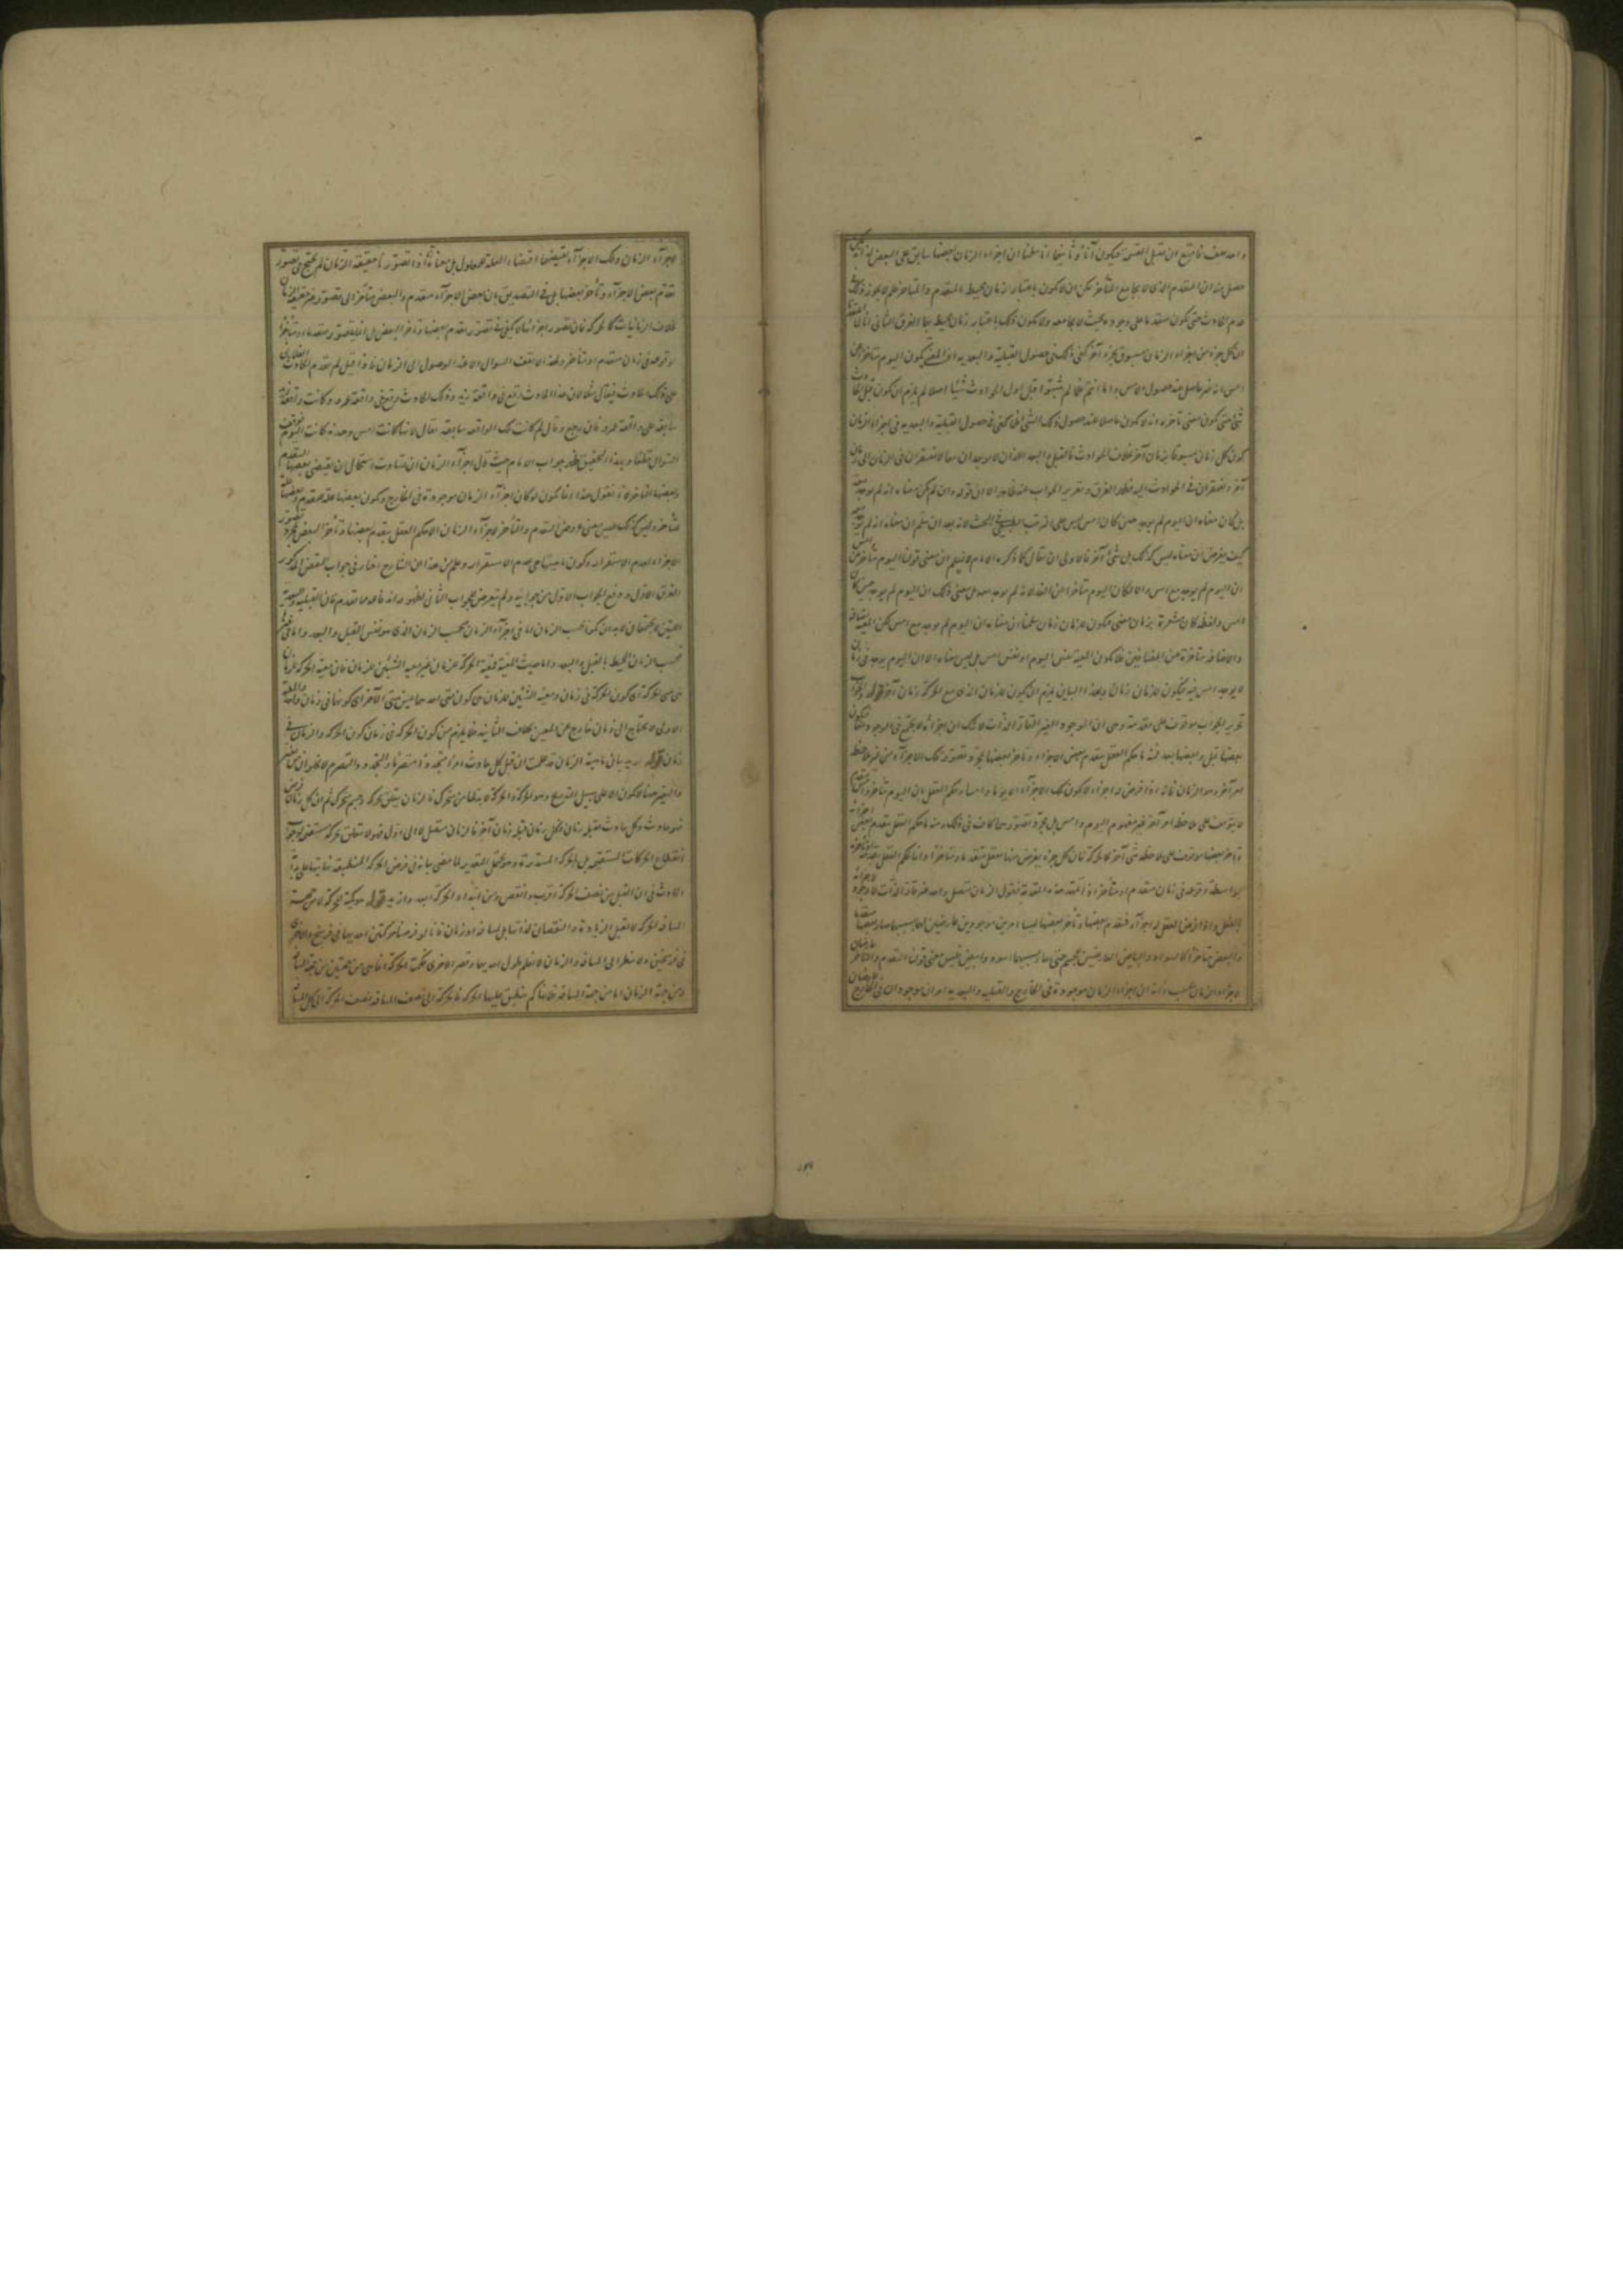 واحد معه فامتنع ان يقبل القسمة فيكون آنا وثانيها انا علمنا ان اجزاء الزمان بعضها سابق على البعض
حصل منه ان المتقدم الذى لا يجامع المتأخر يمكن ان لا يكون باعتبار زمان محيط بالمتقدم والمتأخر فلم لا يجوز
عدم الحادث حتى يكون متقدما على وجوده بحيث لا يجامعه ولا يكون ذلك باعتبار زمان محيط بهما الفرق الثانى
ان كل جزء من اجزاء الزمان مسبوق بجزء آخر كفى ذلك فى حصول القبلية والبعدية اذ المعنى بكون اليوم متأخرا عن
امس انه غير حاصل عند حصول الامس واما انتم فلما لم تثبتوا قبل اول الحوادث شيئا اصلا لم يلزم ان يكون قبل الحادث
شىء حتى يكون معنى تأخره انه لا يكون حاصلا عند حصول ذلك الشىء كفى فى حصول القبلية والبعدية فى اجزاء الزمان
كون كل زمان مسبوقا بزمان آخر بخلاف الحوادث فالقبل والبعد اللذان لا يوجدان معا لا يفتقران فى الزمان الى زمان
آخر ويفتقران فى الحوادث اليه فظهر الفرق وتقرير الجواب عنه ظاهر الا ان قوله وان لم يكن معناه انه لم يوجد معه
بل كان معناه ان اليوم لم يوجد حين كان امس ليس على الترتيب الطبيعى فى البحث لانه بعد ان سلم ان معناه انه لم يوجد معه
كيف يفرض ان معناه ليس كذلك بل شىء آخر فالاولى ان يقال كما ذكره الامام لا نسلم ان معنى قولنا اليوم متأخر عن امس
ان اليوم لم يوجد مع امس والا لكان اليوم متأخرا عن الغد لانه لم يوجد معه بل معنى ذلك ان اليوم لم يوجد حين كان
امس ولفظة كان مشعرة بزمان مضى فيكون للزمان زمان سلمنا ان معناه ان اليوم لم يوجد مع امس لكن المعية اضافة
والاضافة متأخرة عن المضافين فلا يكون المعية نفس اليوم او نفس امس بل ليس معناه الا ان اليوم يوجد فى زمان
لا يوجد امس فيه فيكون للزمان زمان وبهذا البيان يلزم ان يكون للزمان الذى مع الحركة زمان آخر قوله والجواب
تقرير الجواب موقوف على مقدمة وهى ان الموجود الغير القار الذات لا شك ان اجزائه لا يجتمع فى الوجود فيكون
بعضها قبل وبعضها بعد فمنه ما يحكم العقل بتقدم بعض الاجزاء وتأخر بعضها بمجرد تصور تلك الاجزاء من غير ملاحظة
امر آخر وهو الزمان فانه اذا فرض له اجزاء لا يكون تلك الاجزاء الا يوما وامسا وحكم العقل بان اليوم متأخر وامس متقدم
لا يتوقف على ملاحظة امر آخر غير مفهوم اليوم وامس بل مجرد تصورهما كاف فى ذلك ومنه ما يحكم العقل بتقدم بعض اجزائه
وتأخر بعضها موقوف على ملاحظة شىء آخر كالحركة فان كل جزء يفرض منها يعقل متقدما ومتأخرا وانما يحكم العقل بتقدمه وتأخره
بواسطة وقوعه فى زمان متقدم او متأخر اذا تمهد هذه المقدمة فنقول الزمان متصل واحد غير قار الذات لا وجود لاجزائه
بالفعل واذا فرض العقل له اجزاء فتقدم بعضها وتأخر بعضها ليسا امرين موجودين عارضين لها بسببهما صار بعضها متقدما
والبعض متأخرا كالسواد والبياض العارضين للجسم حتى صار بسببهما اسود وابيض فليس معنى قولنا التقدم والتأخر عارضان
لاجزاء الزمان بحسب ذاته ان اجزاء الزمان موجودة فى الخارج والقبلية والبعدية امران موجودان فى الخارج عارضان
لاجزاء الزمان وتلك الاجزاء يقتضيهما اقتضاء العلة للمعلول بل معناه انا اذا تصورنا حقيقة الزمان لم نحتج فى تصور
تقدم بعض الاجزاء وتأخر بعضها بل فى التصديق بان بعض الاجزاء متقدم والبعض متأخر الى تصور غير حقيقة الزمان
بخلاف الزمانيات كالحركة فان تصور اجزائها لا يكفى فى تصور تقدم بعضها وتأخر البعض بل انما يتصور متقدما او متأخرا
لوقوعه فى زمان متقدم او متأخر ولهذا لا يقف السؤال الا عند الوصول الى الزمان فاذا قيل لم تقدم الحادث الفلانى
على ذلك الحادث فيقال مثلا لان هذا الحادث وقع فى واقعة زيد وذلك الحادث وقع فى واقعة عمرو وكانت واقعة
سابقة على واقعة عمرو فان رجع وقال لم كانت تلك الواقعة سابقة يقال لانها كانت امس وهذه كانت اليوم فوقف
السؤال قطعا وبهذا التحقيق ظهر جواب الامام حيث قال اجزاء الزمان ان تساوت استحال ان يقتضى بعضها التقدم
وبعضها التأخر لانا نقول هذا انما يكون لو كان اجزاء الزمان موجودة فى الخارج ويكون بعضها علة للتقدم وبعضها علة
للتأخر وليس كذلك فليس معنى عروض التقدم والتأخر لاجزاء الزمان الا حكم العقل بتقدم بعضها وتأخر البعض بمجرد تصور
الاجزاء لعدم الاستقرار وكون ماهيتها هى عدم الاستقرار وعلم من هذا ان الشارح اختار فى جواب النقض المذكور
الفرق الاول ودفع الجواب الاول من جوابيه ولم يتعرض للجواب الثانى لظهور
فبحسب الزمان المحيط بالقبل والبعد واما حديث المعية فمعية الحركة للزمان غير معية الشيئين للزمان فان معية الحركة للزمان
هى متى الحركة اى كون الحركة فى زمان ومعية الشيئين للزمان هى كون متى احدهما عين متى الآخر اى كونهما فى زمان واحد والمعية
الاولى لا يحتاج الى زمان خارج عن المعين بخلاف الثانية فلا يلزم من كون الحركة فى زمان كون الحركة والزمان فى
زمان قوله يريد بيان ماهية الزمان قد علمت ان قبل كل حادث امرا متجددا متصرما والتجدد والتصرم لا يخلوان من تغير
والتغير هنا لا يكون الا على سبيل التدريج وهو الحركة والحركة لا بد لها من متحرك فالزمان يتعلق بحركة وجسم متحرك ثم ان كل زمان فرض
فهو حادث وكل حادث فقبله زمان فلكل زمان قبله زمان آخر فالزمان متصل لا الى اول فهو لا يتعلق بحركة مستقيمة لوجوب
انقطاع الحركات المستقيمة بل بالحركة المستديرة وهو يحتمل التقدير لما مضى بيانه فى فرض الحركة المنطبقة نهايتها على بداية
الحادث فى ان القبل من نصف الحركة اقرب وانقص ومن ابتداء الحركة ابعد وازيد قوله وهو كمية الحركة لا من جهة
المسافة الحركة لا تقبل الزيادة والنقصان لذاتها بل لمسافة او زمان فانا لو فرضنا حركتين احديهما فى فرسخ والاخرى
فى فرسخين ولا ننظر الى المسافة والزمان لا نعلم طول احديهما وقصر الاخرى فكمية الحركة انما هى من جهتين من جهة المسافة
ومن جهة الزمان اما من جهة المسافة فلانها كم ينطبق عليها الحركة فالحركة الى نصف المسافة نصف الحركة الى كل المسافة